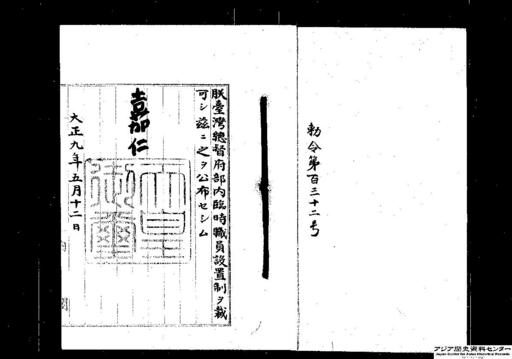 勅令第百三十二号
朕臺灣總督府部內臨時職員設置制ヲ裁
可シ茲ニ之ヲ公布セシム
嘉仁
天皇
御璽
大正九年五月十二日
内
アジア歴史資料センター
Japan Center for Asian Historical Records